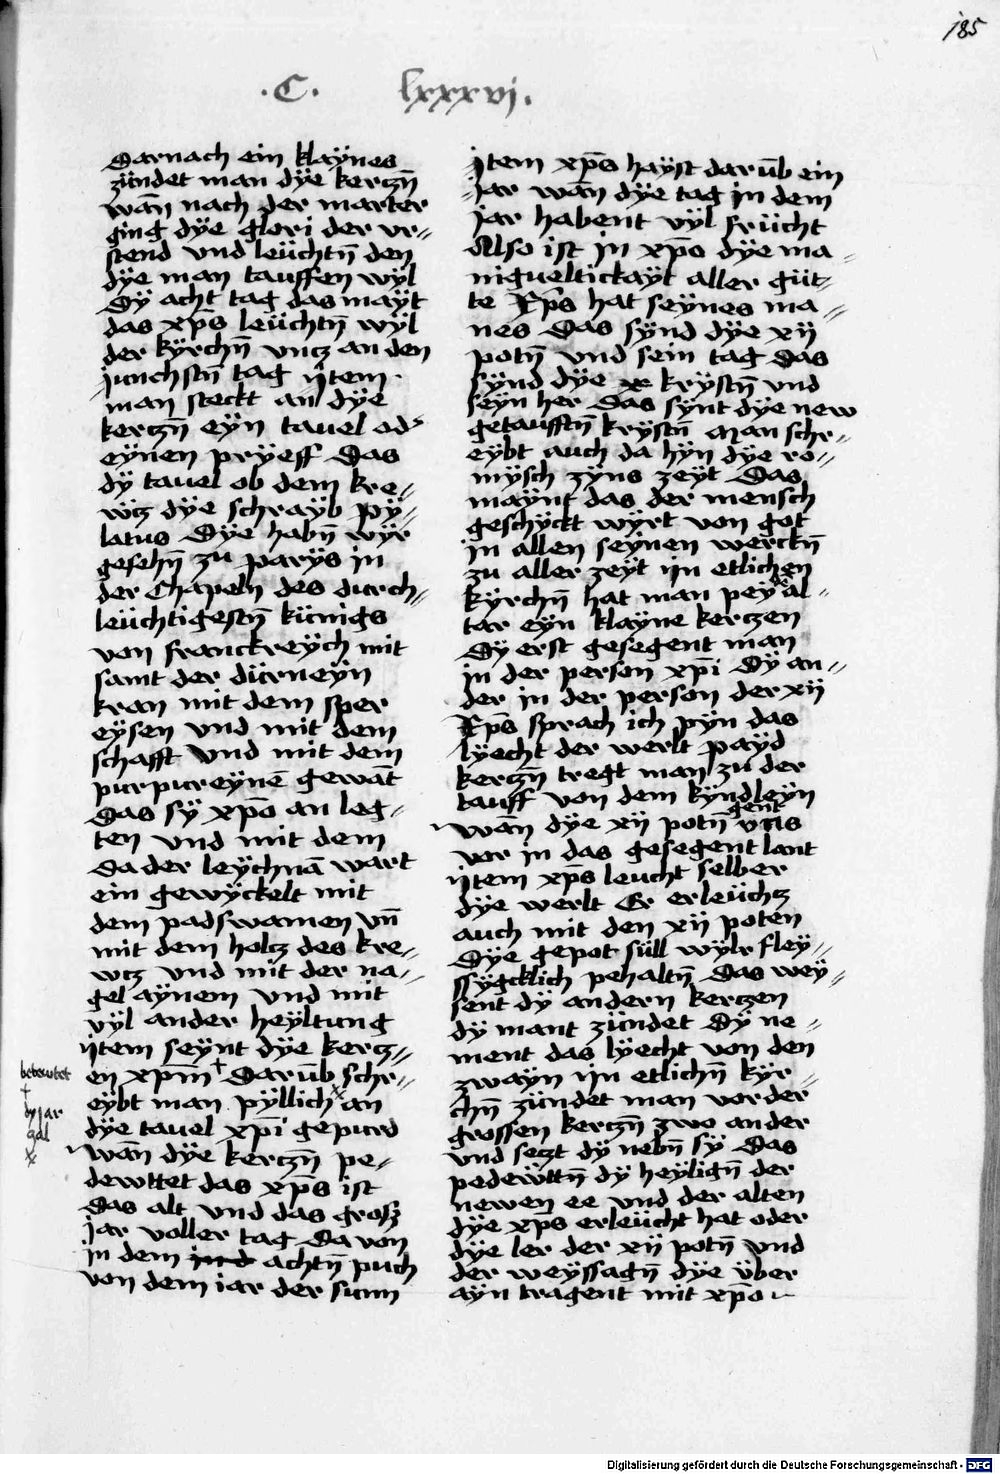 185
.C. lxxxvj.
Darnach ein klaÿnes
zündet man dÿe kerczn̄
wān nach der marter
ging dÿe glori der vr=
stend vnd leüchtn̄ den
dÿe man tauffen wÿl
Dÿ acht tag das maÿt
das xp̄s leüchtn̄ wÿl
der kÿrchn̄ vncz an den
junchstn̄ tag ijtem
man steckt an dÿe
kerczn̄ eÿn tauel od'
eÿnen prÿeff Das
dÿ tauel ob dem kre=
wcz dÿe schraÿb pÿ=
latus Dÿe habn̄ wÿr
gesehn̄ zu parÿs in
der Chapeln̄ des durch=
leüchtigestn̄ künigs
von franckreÿch mit
samt der dürneÿn
kran mit dem sper
eÿsen vnd mit dem
schafft vnd mit dem
purpureÿnē gewāt
Das sÿ xp̄o an leg=
ten vnd mit dem
Da der leÿchnā wart
ein gewÿckelt mit
dem padswamen vn̄
mit dem holcz des kre=
wcz vnd mit der na=
gel aÿnem vnd mit
vÿl ander heÿltung
ijtem seÿnt dÿe kercz=
en xpm̄ + Darūb schr=
eÿbt man pÿllich x an
dÿe tauel xpī gepurd
wān dÿe kerczn̄ pe=
dewttet das xp̄s ist
das alt vnd das grosz
jar voller tag Da von
in dem ind achtn̄ puch
von dem iar der sunn
betewtet
+
dy jar
zal
x
jtem xp̄s haÿst darūb ein
jar wān dÿe tag in dem
jar habent vÿl frücht
Also ist in xp̄o dÿe ma=
nigueltickaÿt aller güt=
te Xp̄s hat seÿnes ma=
nes Das sÿnd dÿe xij
potn̄ vnd sein tag Das
sÿnd dÿe xr krÿstn̄ vnd
seÿn her Das sÿnt dÿe new
getaufftn̄ krÿstn̄ Man schr=
eÿbt auch da hÿn dÿe ro=
mÿsch zÿns zeÿt Das
maÿnt das der mensch
geschÿckt wÿrt von got
in allen seÿnen werckn̄
zu aller zeÿt ijn etlichen
kÿrchn̄ hat man peÿ dē al=
tar eÿn klaÿne kerczen
Dÿ erst gesegent man
in der person xpī Dÿ an=
der in der person der xij
Xp̄s sprach ich pÿn das
lÿecht der werlt paÿd
kerczn̄ tregt man zu der
tauff von dem kÿndleÿn
wān dÿe xij potn̄ gent vns
vor in das gesegent lant
ijtem xps leucht selber
dÿe werlt Er erleücht
auch mit den xij poten
Dÿe gepot süll wÿlr fleÿ=
ssÿgcklich pehaltn̄ Das weÿ=
sent dÿ andern kerczen
dÿ mant zündet Dÿ ne=
ment das lÿecht von den
zwaÿn ijn etlichn̄ kÿr=
chn̄ zündet man vor der
grossen kerczn̄ zwo ander
vnd seczt dÿ nebn̄ sÿ Das
pedewttn̄ dÿ heÿlign̄ der
newen ee vnd der alten
dÿe xps erleücht hat oder
dÿe ler der xij potn̄ vnd
der weÿssagn̄ dÿe über
aÿn tragent mit xp̄o
Digitalisierung gefördert durch die Deutsche Forschungsgemeinschaft - DFG